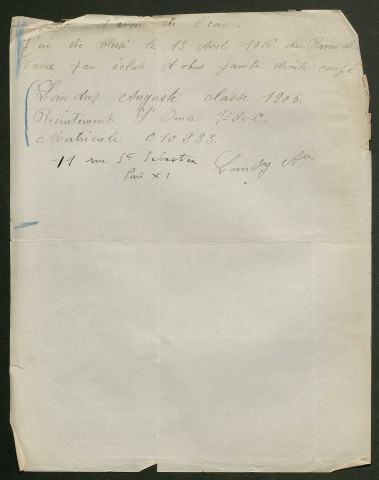 d'avoir de l'eau.
J'ai été blessé le 15 Avril 1916 au Ravin de
par éclat d'obus jambe droite coupé
Landry Auguste classe 1906.
Recrutement St Omer P-de-C.
Matricule 010833.
11 rue St Sébastien
Paris XI
Landry Au